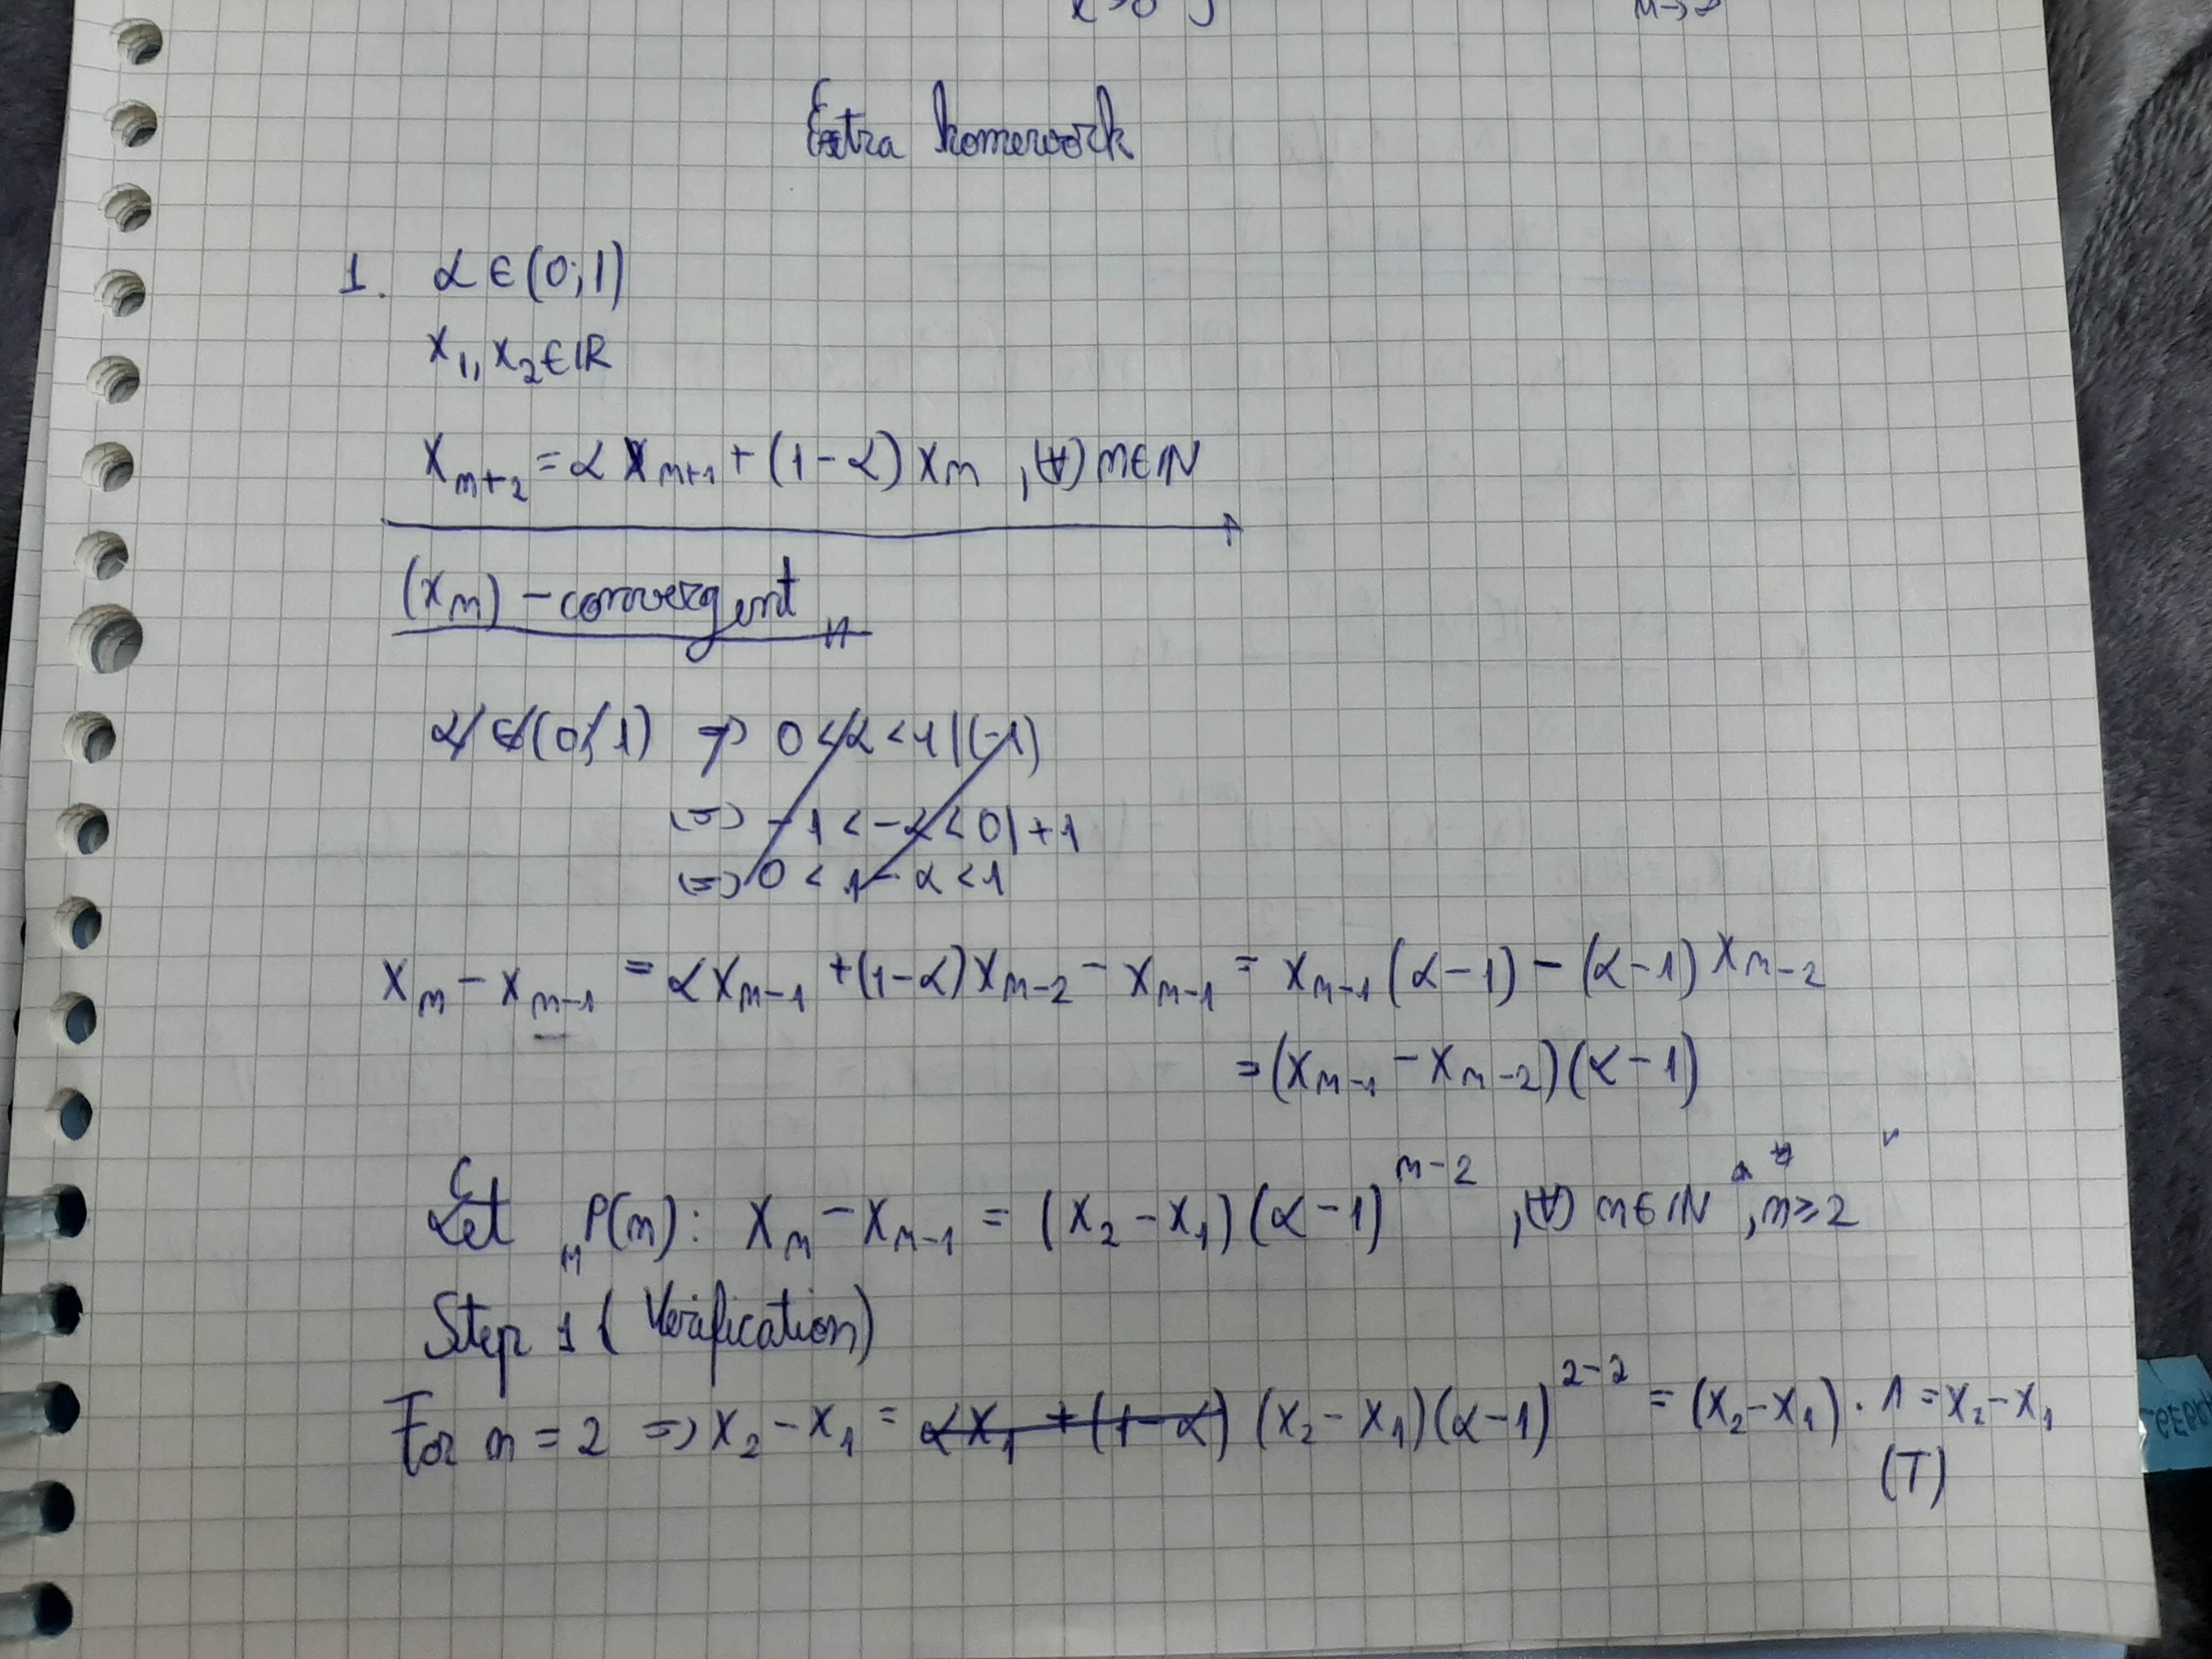 x→0
n→∞
Extra homework
1. α ∈ (0;1)
x₁, x₂ ∈ ℝ
x_{n+2} = α x_{n+1} + (1-α) x_n , (∀) n ∈ ℕ
(x_n) - convergent
α ∈ (0;1) ⇒ 0 < α < 1 |(-1)
(=) -1 < -α < 0 | +1
(=) 0 < 1 - α < 1
x_n - x_{n-1} = α x_{n-1} + (1-α) x_{n-2} - x_{n-1} = x_{n-1} (α-1) - (α-1) x_{n-2}
= (x_{n-1} - x_{n-2}) (α-1)
Let P(n): x_n - x_{n-1} = (x₂ - x₁) (α-1)^{n-2} , (∀) n ∈ ℕ , n ≥ 2
Step 1 (Verification)
For n = 2 ⇒ x₂ - x₁ = αx₁ + (1-α) (x₂ - x₁) (α-1)^{2-2} = (x₂ - x₁) · 1 = x₂ - x₁
(T)